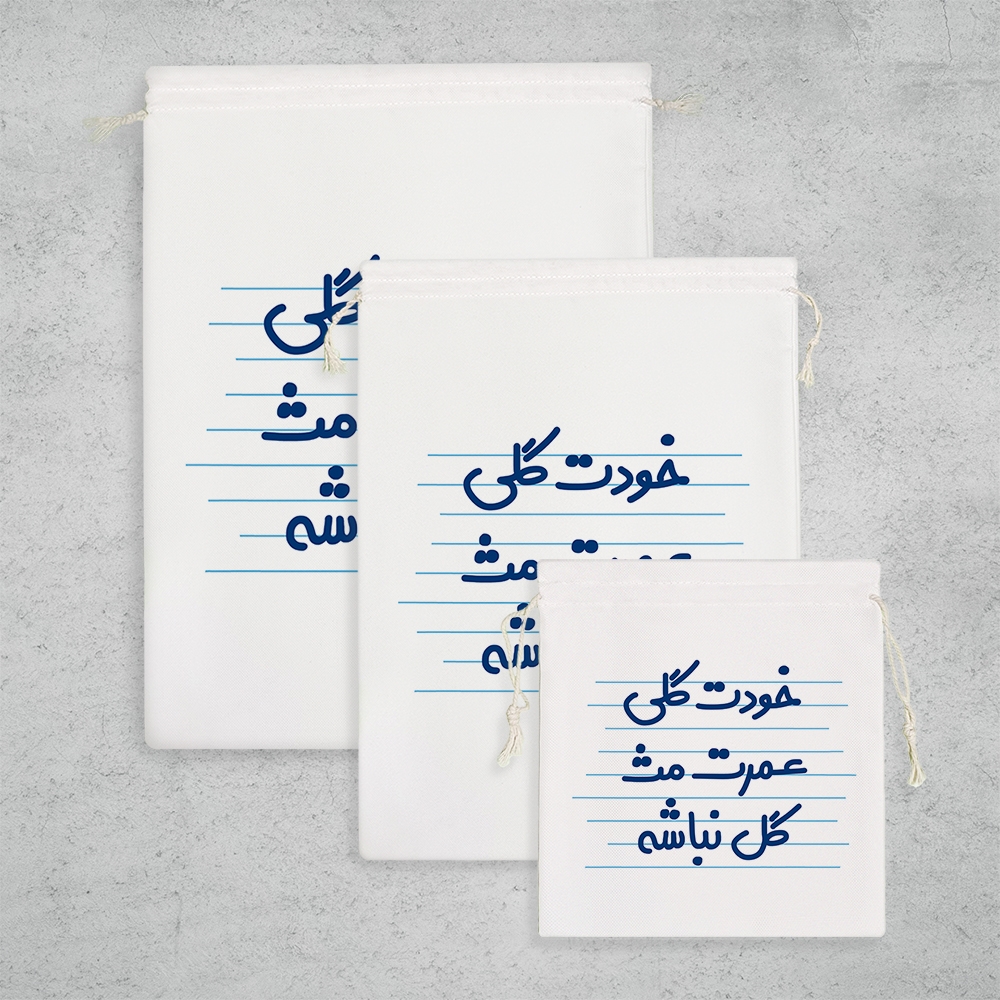 گلی
مث
شه
خودت گلی
عمرت مث
شه
خودت گلی
عمرت مث
گل نباشه